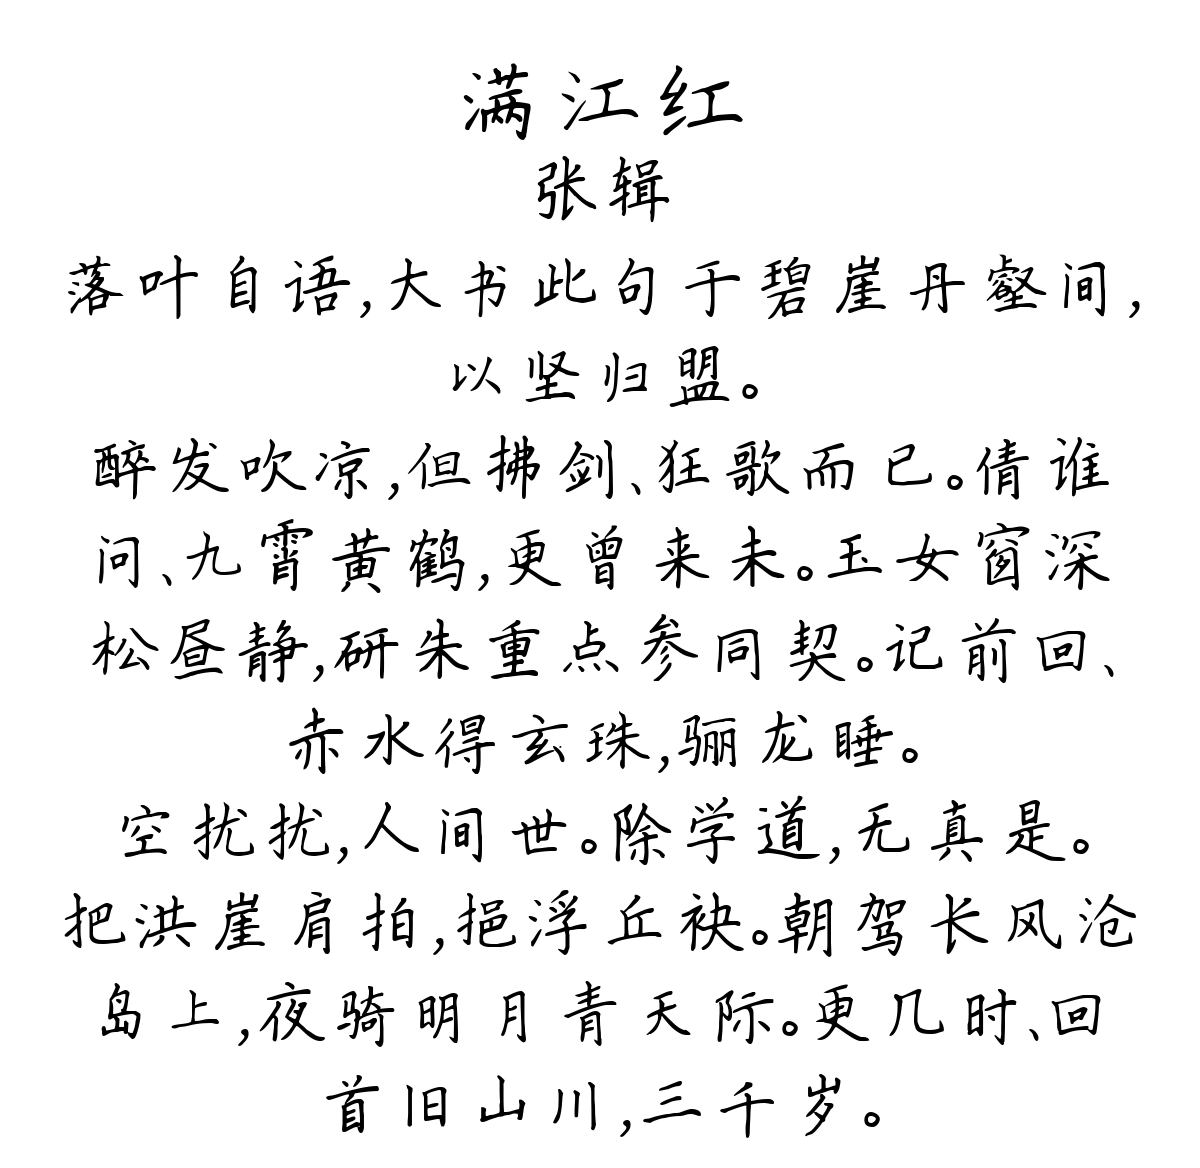 满江红
张辑
落叶自语,大书此句于碧崖丹壑间,
以坚归盟。
醉发吹凉,但拂剑、狂歌而已。倩谁
问、九霄黄鹤,更曾来未。玉女窗深
松昼静,研朱重点参同契。记前回、
赤水得玄珠,骊龙睡。
空扰扰,人间世。除学道,无真是。
把洪崖肩拍,挹浮丘袂。朝驾长风沧
岛上,夜骑明月青天际。更几时、回
首旧山川,三千岁。